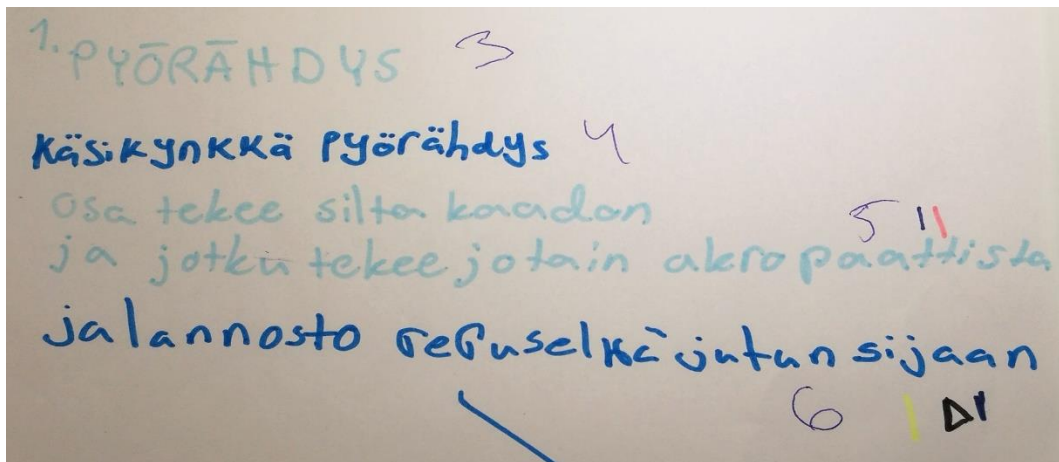 1. PYÖRÄHDYS 3
Käsikynkkä pyörähdys 4
osa tekee silta kaadon
ja jotku tekee jotain akropaattista 5
jalannosto reppuselkä jutun sijaan
6